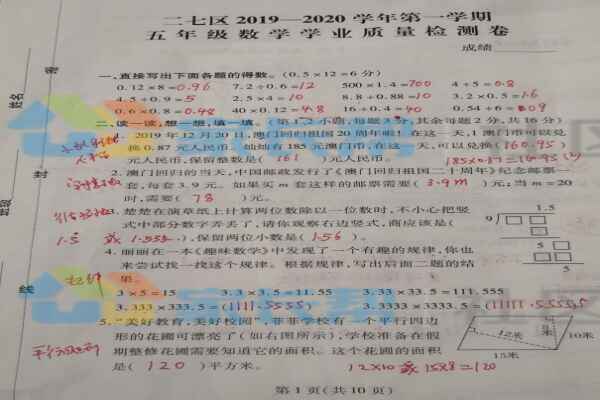 二七区 2019—2020 学年第一学期
五年级数学学业质量检测卷
成绩
一、直接写出下面各题的得数。(0.5×12=6 分)
0.12×8=0.96 7.2÷0.6=12 500×1.4=700 4÷5=0.8
4.5÷0.9=5 2.5×4=10 8.8÷0.88=10 3.2×0.5=1.6
0.6×0.8=0.48 40×0.12=4.8 16÷0.4=40 0.54÷6=0.09
二、读一读,想一想,填一填。(第1、2小题,每题3分,其余每题2分,共16分)
1. 2019年12月20日,澳门回归祖国20周年啦!在这一天,1澳门币可以兑
换0.87元人民币。灿灿有185元澳门币,在这一天,可以兑换(160.95)
元人民币,保留整数是( 161 )元人民币。
185×0.87=160.95(元)
2. 澳门回归的当天,中国邮政发行了《澳门回归祖国二十周年》纪念邮票一
套,每套3.9元。如果买m套这样的邮票需要( 3.9m )元;当m=20
时,需要( 78 )元。
3. 楚楚在演算纸上计算两位数除以一位数时,不小心把竖
式中部分数字弄丢了,请你观察右边竖式,商应该是(
1.5 或 1.555… ),保留两位小数是( 1.56 )。
1.5
9
5
5
4. 丽丽在一本《趣味数学》中发现了一个有趣的规律,你也
来尝试找一找这个规律。根据规律,写出后面二题的结
果。
3×5=15 3.3×3.5=11.55 3.33×33.5=111.555
3.333×333.5=(1111.5555) 3.3333×3333.5=(11111.55555)
5. “美好教育,美好校园”,菲菲学校有一个平行四边
形的花圃可漂亮了(如右图所示),学校准备在假
期整修花圃需要知道它的面积。这个花圃的面积
是( 120 )平方米。
12米
8米
10米
15米
12×10 或 15×8=120
第1页(共10页)
姓名
班级
密
封
线